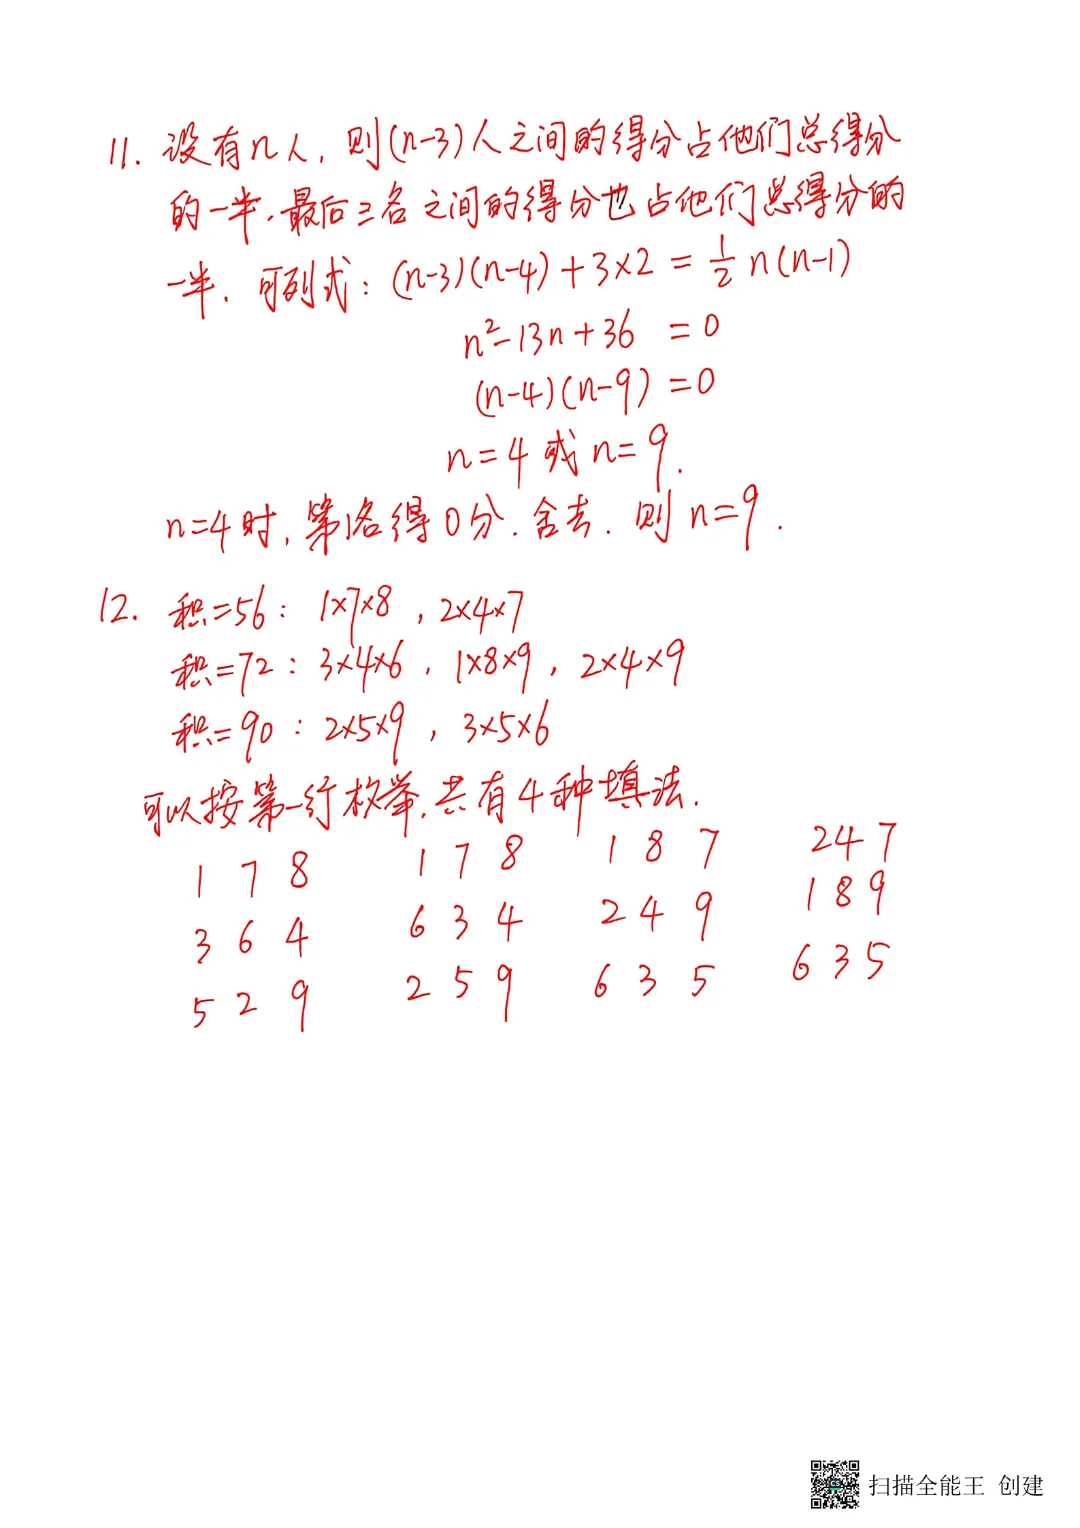 11. 设有n人, 则(n-3)人之间的得分占他们总得分
的一半. 最后三名之间的得分也占他们总得分的
一半. 可列式: (n-3)(n-4)+3×2=½n(n-1)
n²-13n+36 =0
(n-4)(n-9)=0
n=4 或 n=9.
n=4时, 第1名得0分. 舍去. 则n=9.
12. 积=56: 1×7×8 , 2×4×7
积=72: 3×4×6 , 1×8×9 , 2×4×9
积=90: 2×5×9 , 3×5×6
可以按第一行枚举. 共有4种填法.
1 7 8 1 7 8 1 8 7 2 4 7
3 6 4 6 3 4 2 4 9 1 8 9
5 2 9 2 5 9 6 3 5 6 3 5
扫描全能王 创建